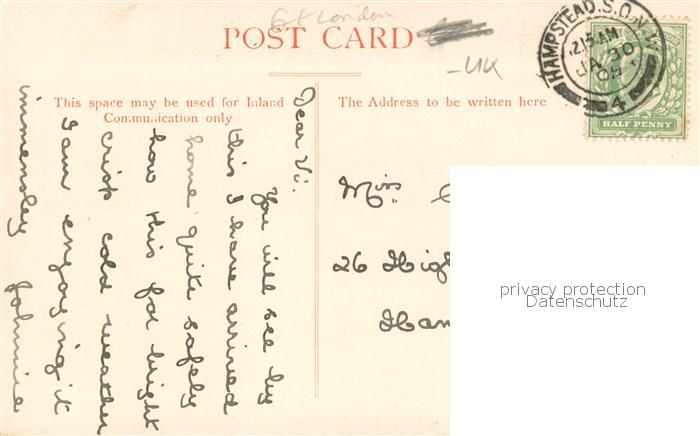 Gt London
POST CARD
-UK
HAMPSTEAD. S.O. N.W.
12.15 AM
JA 30
09
4
HALF PENNY
This space may be used for Inland
Communication only
The Address to be written here
Dear Vi.
You will see by
this I have arrived
home quite safely
how this for bright
crisp cold weather
I am enjoying it
immensley
Johnnie
Miss
26 High
Ham
privacy protection
Datenschutz